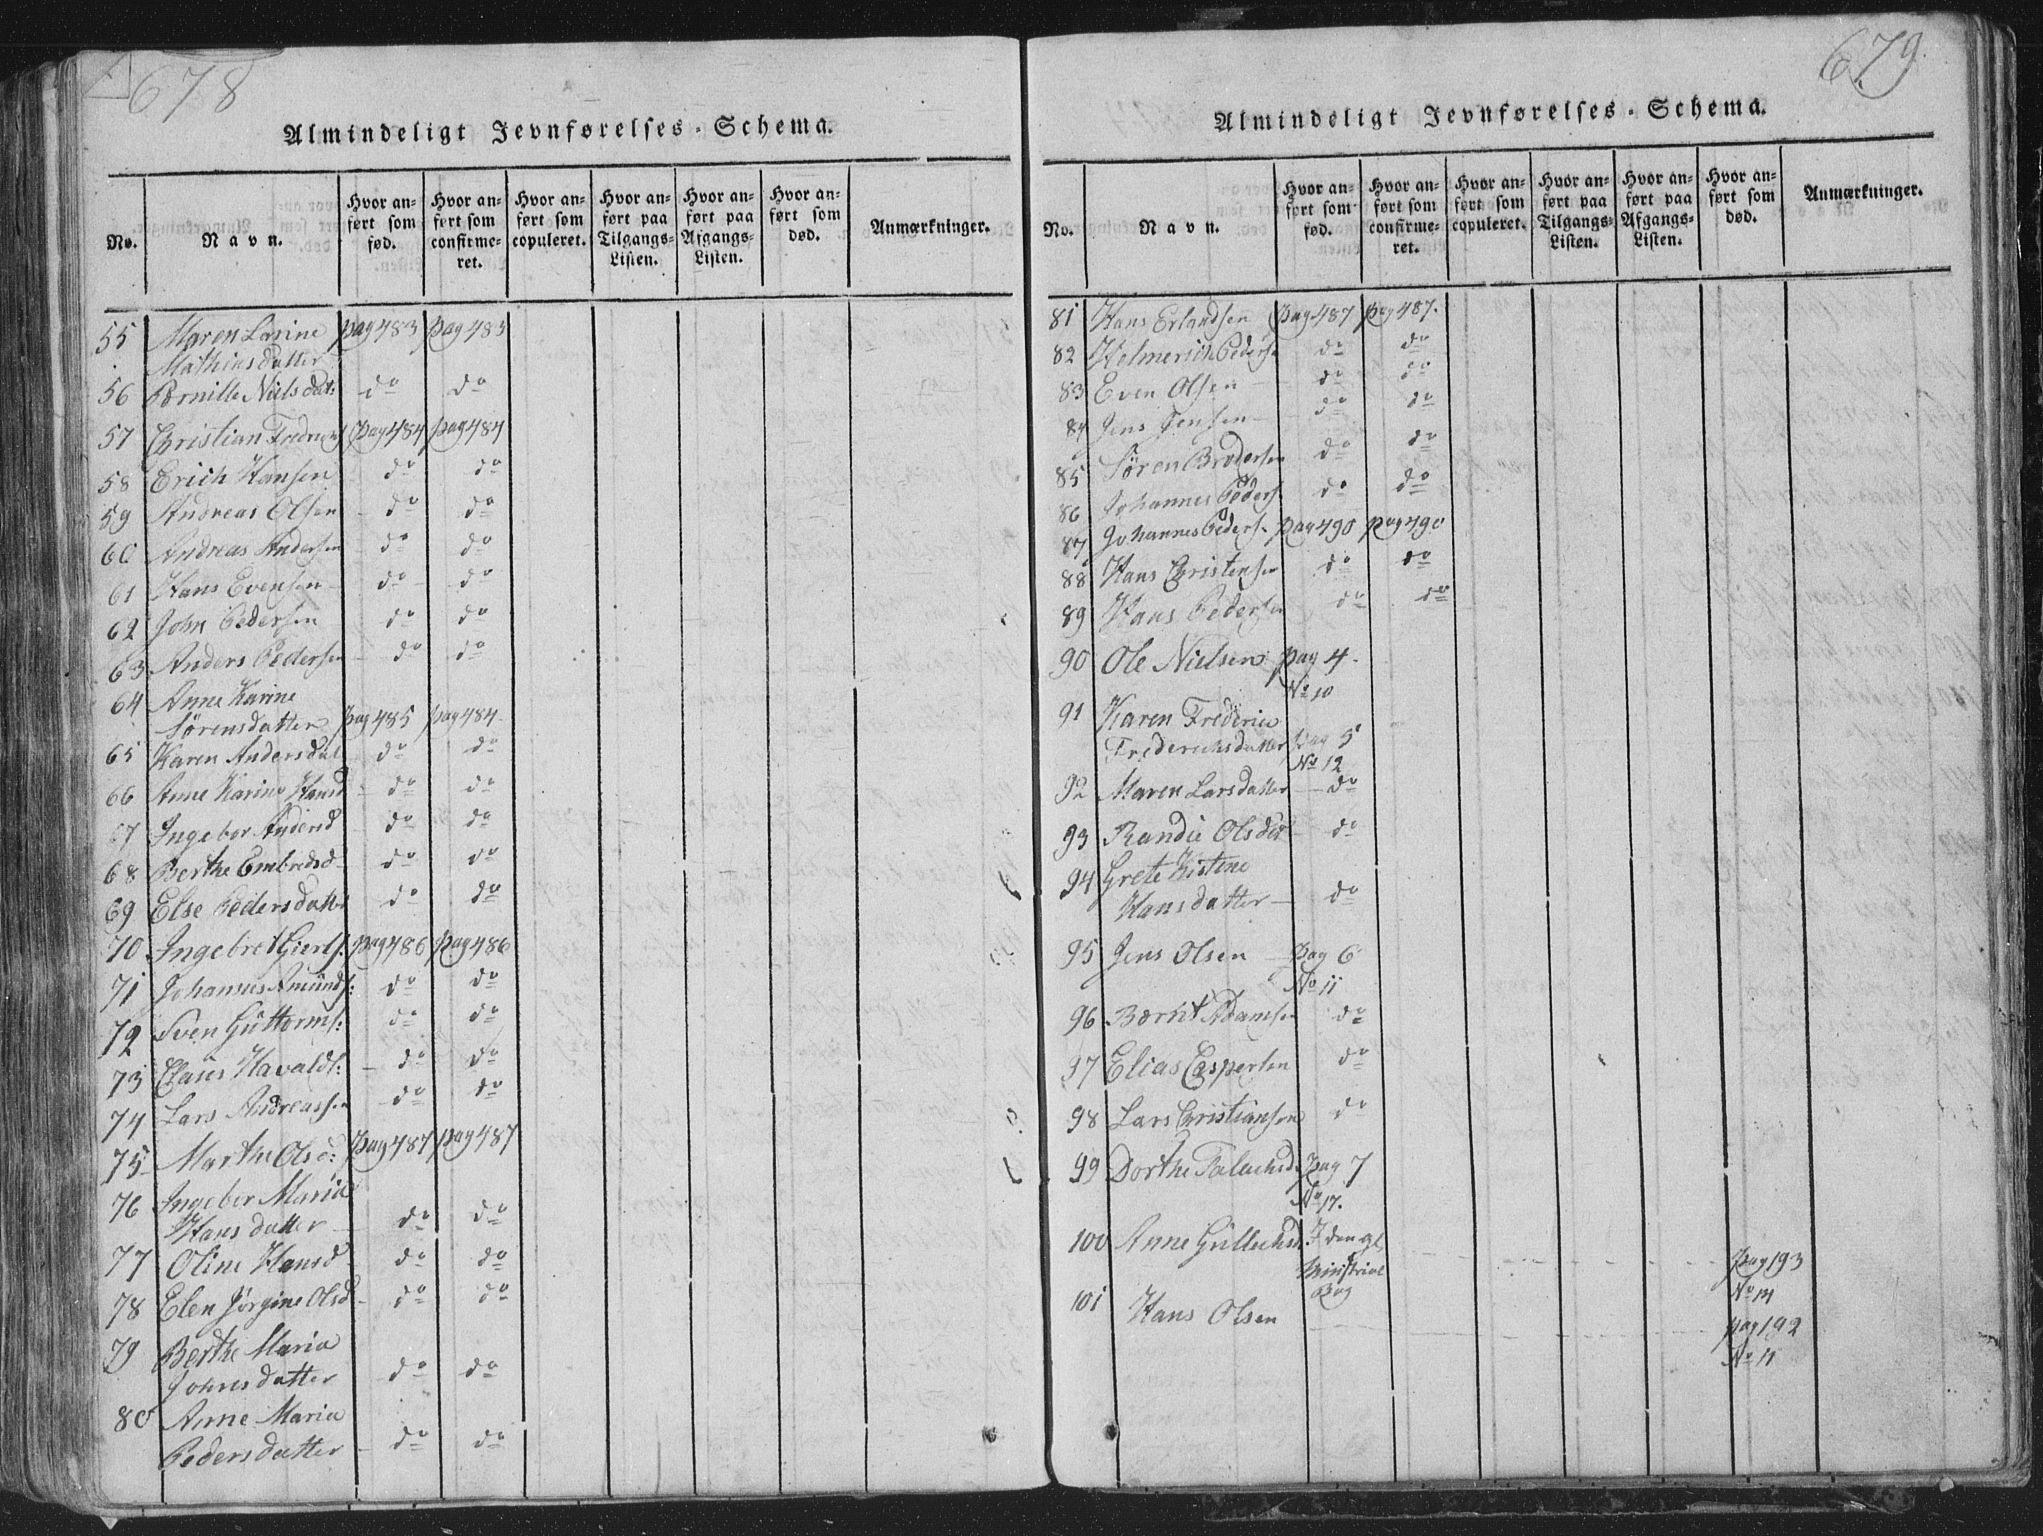 678
Almindeligt Jevnførelses-Schema.
No. Navn. Hvor anført som fød. Hvor anført som confirmeret. Hvor anført som copuleret. Hvor anført paa Tilgangs-Listen. Hvor anført paa Afgangs-Listen. Hvor anført som død. Anmærkninger.
55 Maren Larine pag 483 pag 483
Mathiasdatter
56 Pernille Niels dat: do do
57 Christian Fredrichs pag 484 pag 484
58 Erich Hansen do do
59 Andreas Olsen do do
60 Andreas Andersen do do
61 Hans Evensen do do
62 John Pedersen do do
63 Anders Pedersen do do
64 Anne Karine
Sørensdatter pag 485 pag 484
65 Karen Andersdat do do
66 Anne Karine Hansd do do
67 Ingebor Andersd do do
68 Berthe Embretsd do do
69 Else Pedersdatter do do
70 Ingebret Gierts: pag 486 pag 486
71 Johannes Amunds: do do
72 Sven Guttorms: do do
73 Claus Havalds: do do
74 Lars Andreassen do do
75 Marthe Olsd: pag 487 pag 487
76 Ingebor Maria
Hans datter do do
77 Oline Hansd do do
78 Elen Jørgine Olsd do do
79 Berthe Maria
Johnsdatter do do
80 Anne Maria
Pedersdatter do do
679
Almindeligt Jevnførelses-Schema.
No. Navn. Hvor anført som fød. Hvor anført som confirmeret. Hvor anført som copuleret. Hvor anført paa Tilgangs-Listen. Hvor anført paa Afgangs-Listen. Hvor anført som død. Anmærkninger.
81 Hans Erlandsen pag 487 pag 487.
82 Helmerich Peders do do
83 Even Olsen do do
84 Jens Jensen do do
85 Søren Brodersen do do
86 Johannes Peders. do do
87 Johannes Peders. pag 490 pag 490
88 Hans Christensen do do
89 Hans Pedersen do do
90 Ole Nielsen pag 4
No 10
91 Karen Frederica
Frederichsdatter pag 5
No 12
92 Maren Larsdatter do
93 Randie Olsdat do
94 Grete Kistene
Hansdatter do
95 Jens Olsen pag 6
No 11
96 Bernt Adamsen do
97 Elias Espersen do
98 Lars Christiansen do
99 Dorthe pag 7
No 17.
100 Anne I den gl
Ministrial
Bog pag 193
No 14
101 Hans Olsen pag 192
No 11